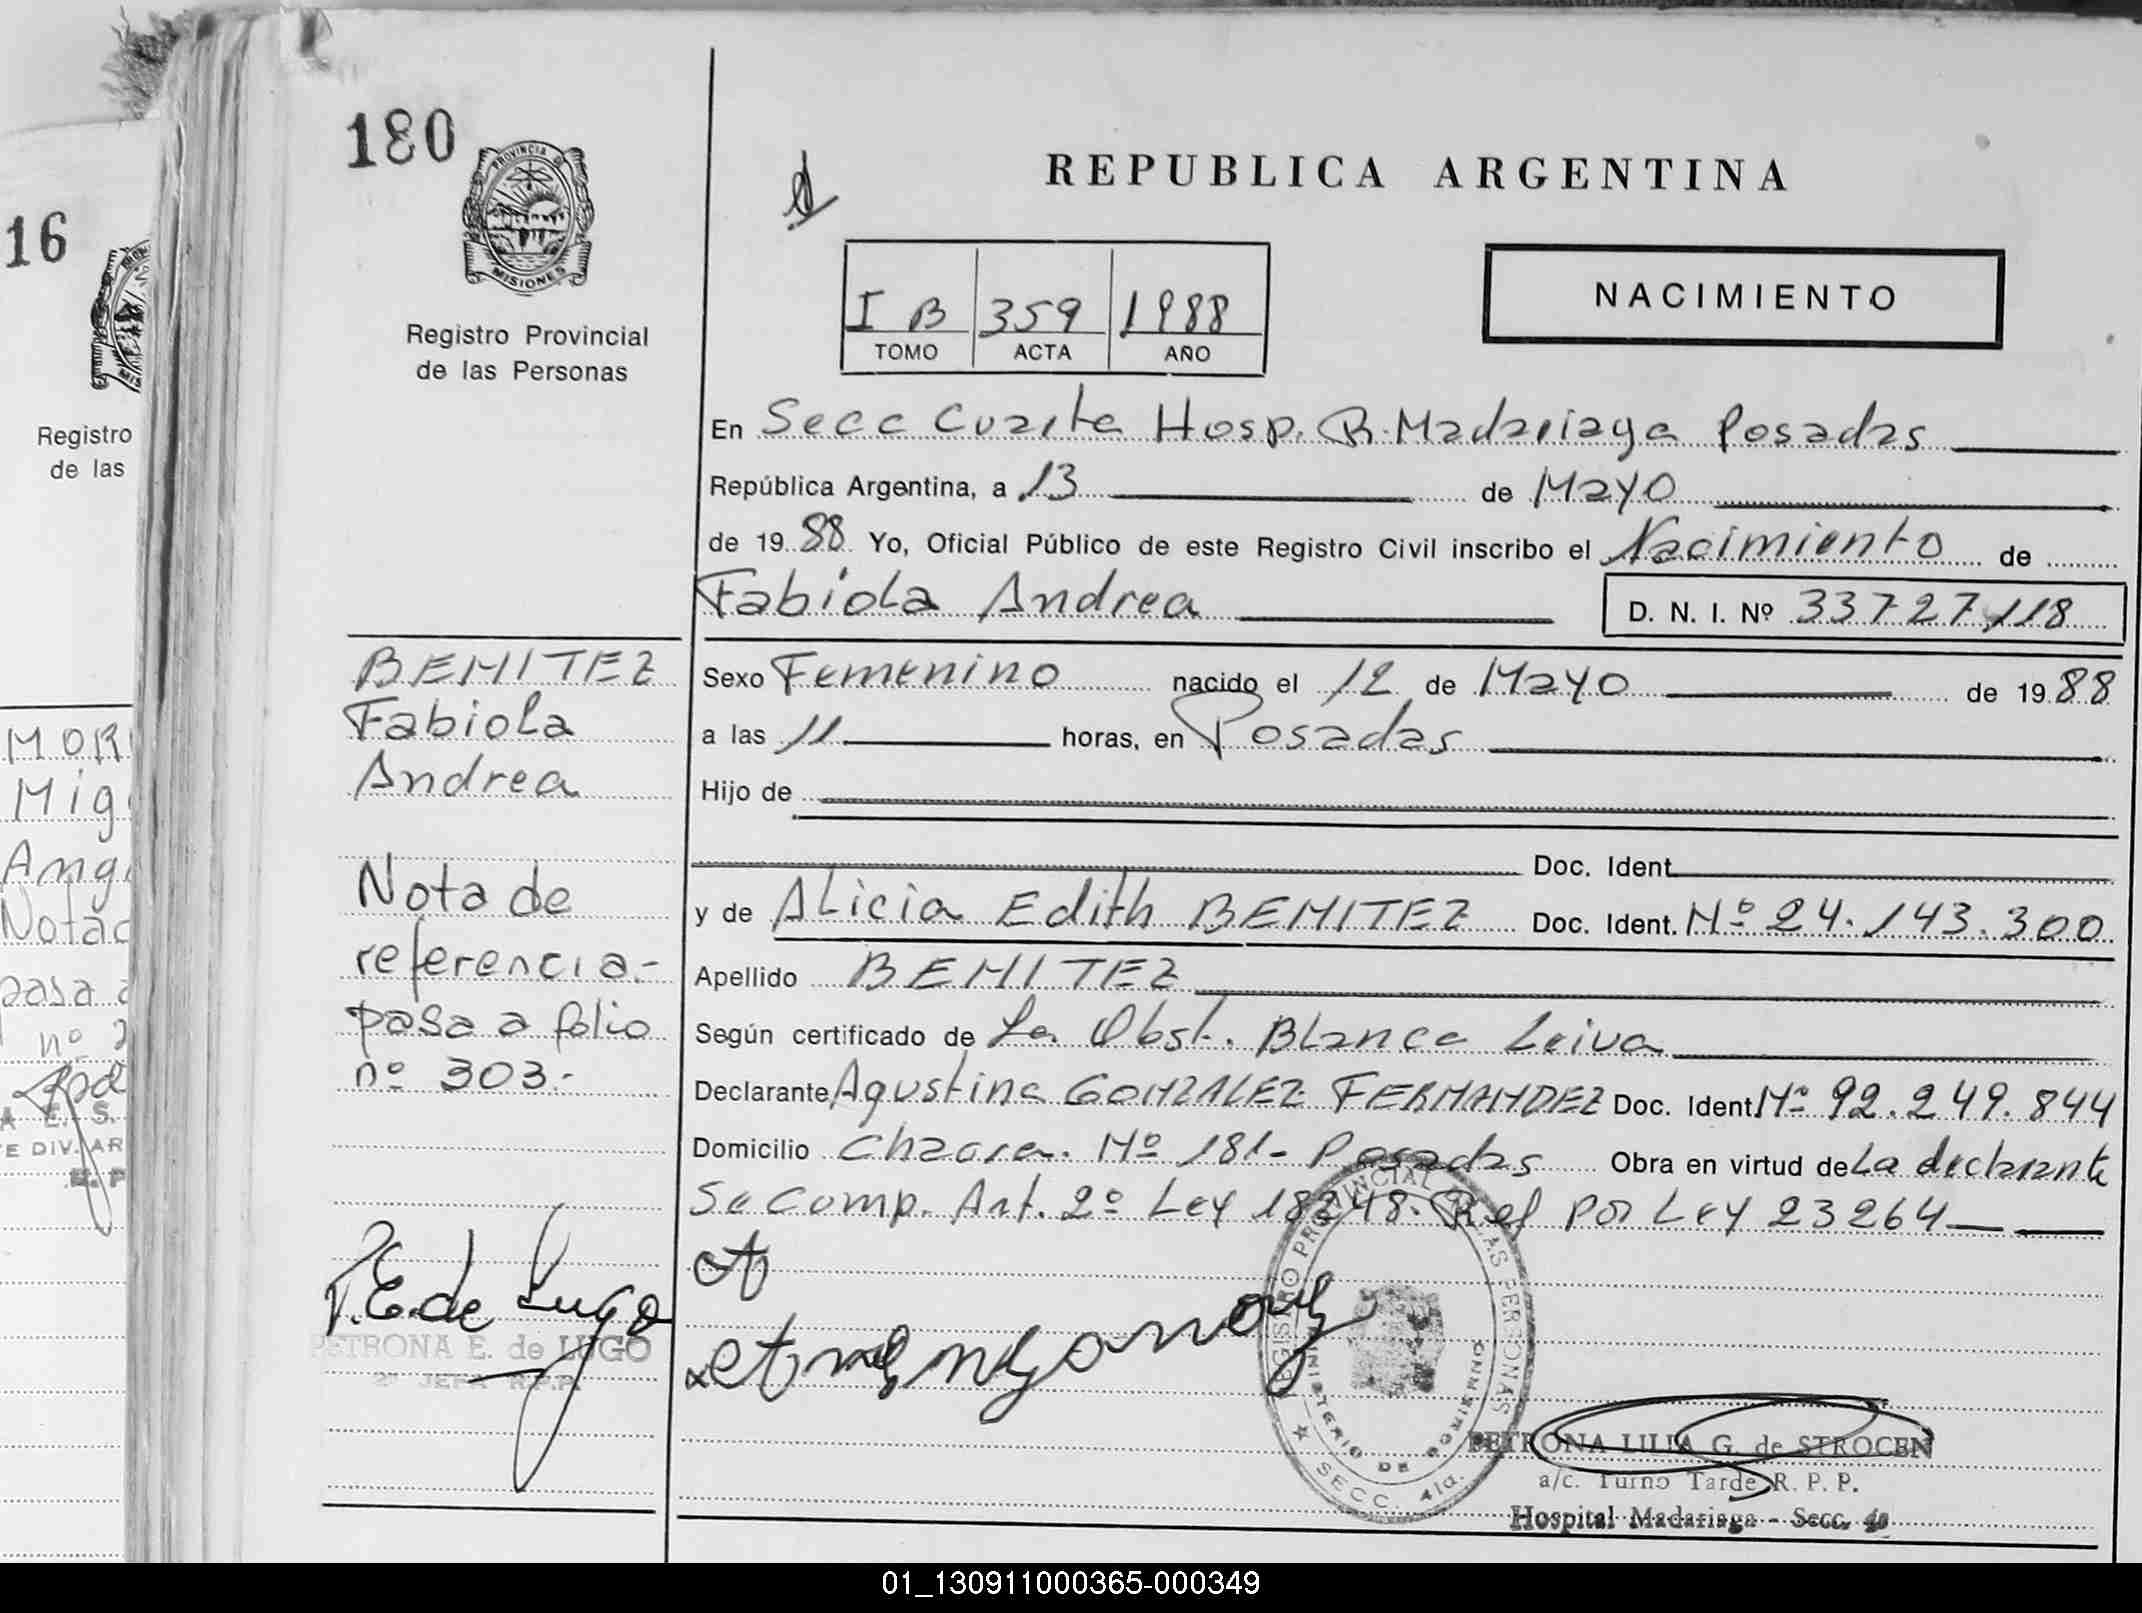 180
PROVINCIA DE
MISIONES
Registro Provincial
de las Personas
REPUBLICA ARGENTINA
I B 359 1988
TOMO ACTA AÑO
NACIMIENTO
En Secc Cuarta Hosp. R. Madariaga Posadas
República Argentina, a 13 de Mayo
de 19 88 Yo, Oficial Público de este Registro Civil inscribo el Nacimiento de
Fabiola Andrea
D. N. I. Nº 33727118
BENITEZ
Fabiola
Andrea
Nota de
referencia.-
pasa a folio
nº 303.-
P.E. de Lugo
PETRONA E. de LUGO
2º JEFA R.P.P.
Sexo Femenino nacido el 12 de Mayo de 19 88
a las 11 horas, en Posadas
Hijo de
Doc. Ident.
y de Alicia Edith BENITEZ Doc. Ident. Nº 24.143.300
Apellido BENITEZ
Según certificado de La Obst. Blanca Leiva
Declarante Agustina GONZALEZ FERNANDEZ Doc. Ident Nº 92.249.844
Domicilio Chacra. Nº 181- Posadas Obra en virtud de La declarante
Se Comp. Art. 2º Ley 18248. Ref por Ley 23264
REGISTRO PROVINCIAL DE LAS PERSONAS
MINISTERIO DE GOBIERNO
SECC. 4ta.
PETRONA LILIA G. de STROCEN
a/c. Turno Tarde R. P. P.
Hospital Madariaga - Secc. 4a
16
Registro
de las
MOR
Mig
Ang
Nota
pasa a
nº 2
A E. S.
E DIV. AR
01_130911000365-000349